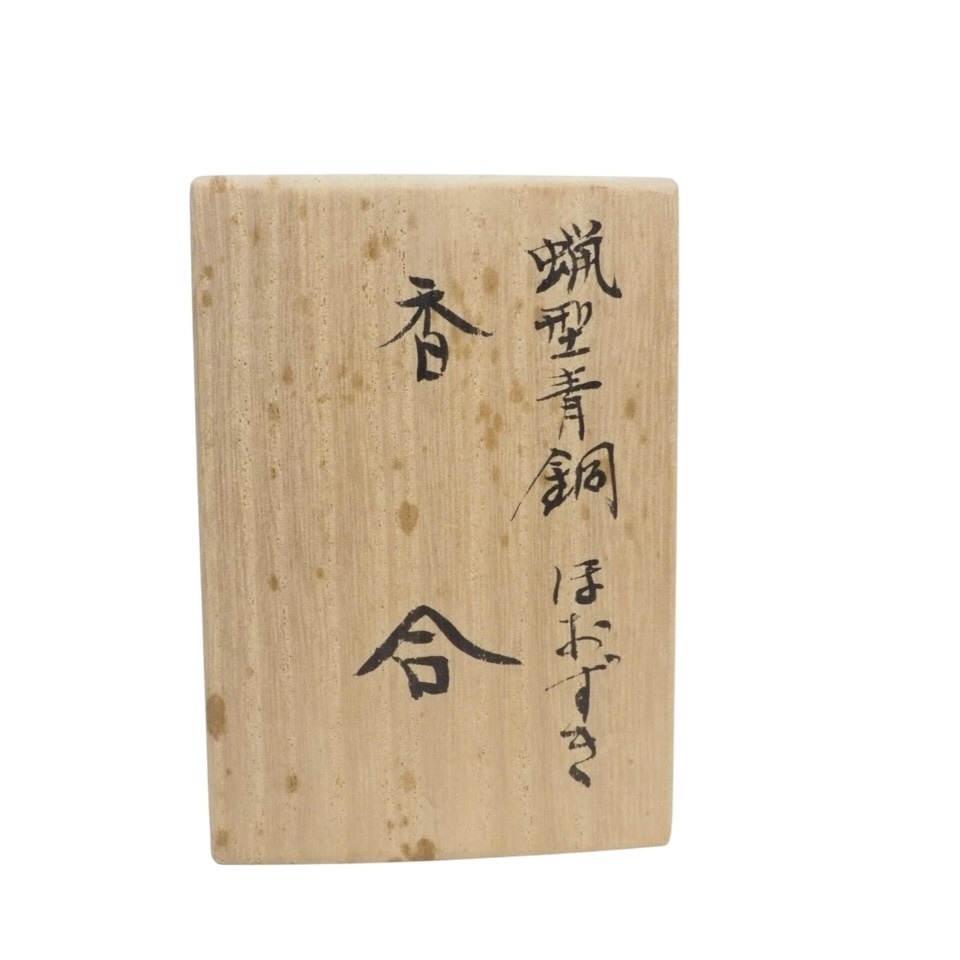 蝋型青銅 ほおずき
香合